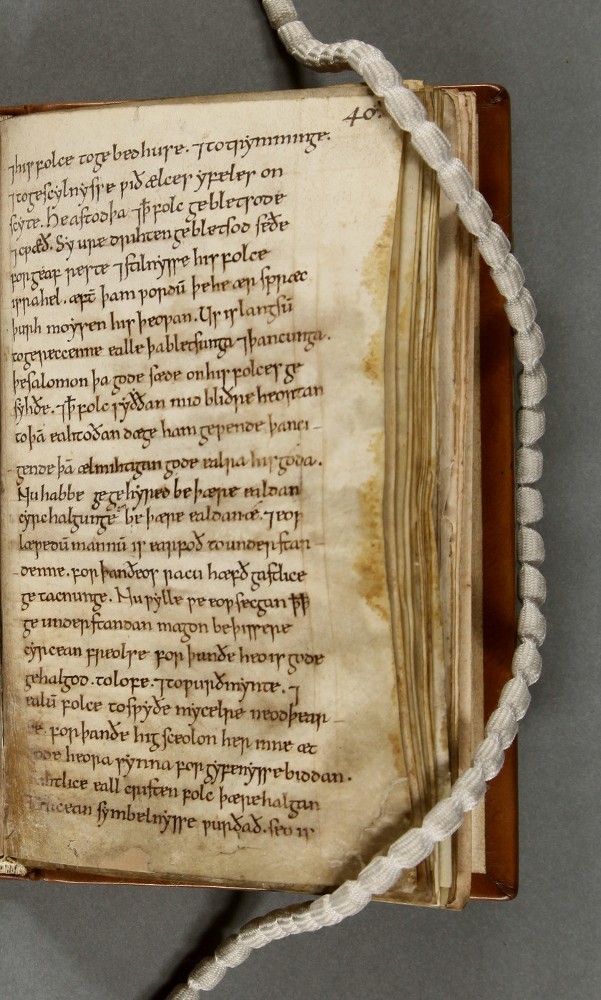 40.
⁊ his folce to gebedhuse. ⁊ to trymminge.
⁊ to gescyldnysse ƿið ælces yfeles on
scyte. He astod þa ⁊ ꝥ folc gebletsode
⁊ cƿæð. Sy ure drihten gebletsod seðe
forgeaf reste ⁊ stilnysse his folce
israhel. æft̄ þam ƿordū þe he ær spræc
þurh moysen his þeoƿan. Us is langsū
to gereccenne ealle þa bletsunga ⁊ þancunga.
þe salomon þa gode sæde on his folces ge
syhðe. ⁊ ꝥ folc syððan mid bliðre heortan
to þā eahtoðan dæge ham geƿende þanci-
gende þā ælmihtigan gode ealra his goda.
Nu habbe ge gehyred be þære ealdan
cyrchalgunge be þære ealdan æ. ⁊ eoƿ
læƿedū mannū is earfoð to understan-
denne. for þan ðeos racu hæfð gastlice
getacnunge. Nu ƿylle ƿe eoƿ secgan ꝥ ꝥ
ge understandan magon be þissere
cyrcean freolse for þan ðe heo is gode
gehalgod. to lofe. ⁊ to ƿurðmynte. ⁊
ealū folce to sƿyðe mycelre neodþear-
fe. for þan ðe hig sceolon her inne æt
gode heora synna forgyfenysse biddan.
Rihtlice eall cristen folc þære halgan
cyrcean symbelnysse ƿurðað. seo is